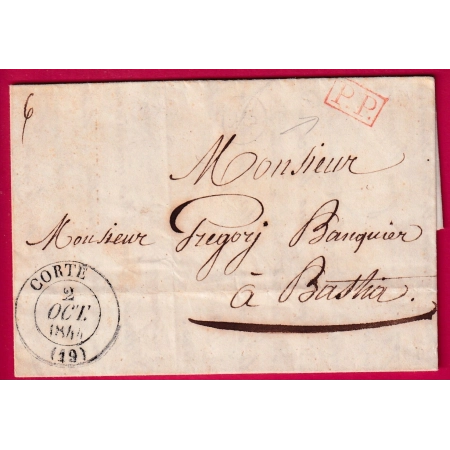 6
P.P.
Monsieur
Monsieur Gregorj Banquier
à Bastia.
CORTE
2
OCT.
1844
(19)